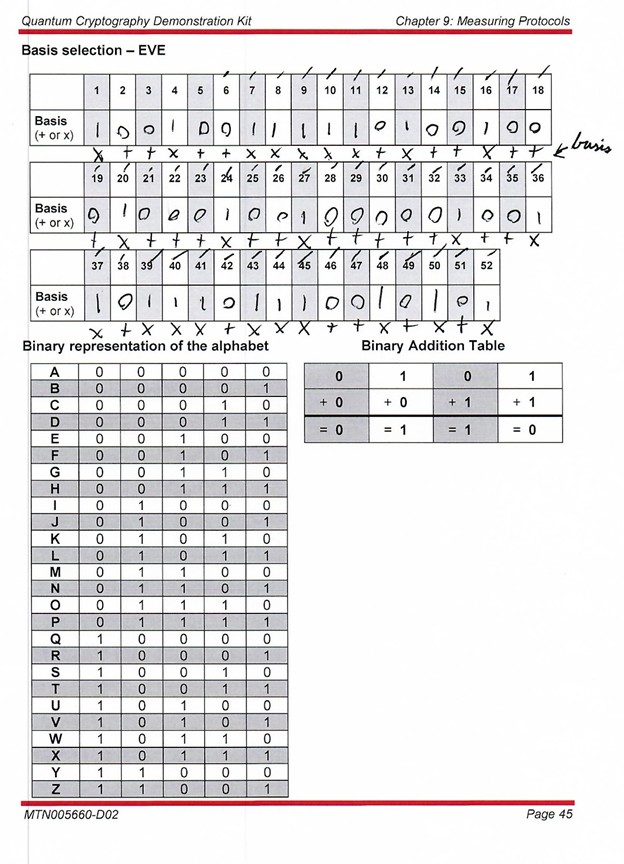 Quantum Cryptography Demonstration Kit Chapter 9: Measuring Protocols
Basis selection – EVE
1 2 3 4 5 6 7 8 9 10 11 12 13 14 15 16 17 18
Basis (+ or x) 1 0 0 1 0 0 1 1 1 1 1 0 1 0 0 1 0 0
x + + x + + x x x x x + x + + x + + ← basis
19 20 21 22 23 24 25 26 27 28 29 30 31 32 33 34 35 36
Basis (+ or x) 0 1 0 0 0 1 0 0 1 0 0 0 0 0 1 0 0 1
+ x + + + x + + x + + + + + x + + x
37 38 39 40 41 42 43 44 45 46 47 48 49 50 51 52
Basis (+ or x) 1 0 1 1 1 0 1 1 1 0 0 1 0 1 0 1
x + x x x + x x x + + x + x + x
Binary representation of the alphabet Binary Addition Table
A 0 0 0 0 0
B 0 0 0 0 1
C 0 0 0 1 0
D 0 0 0 1 1
E 0 0 1 0 0
F 0 0 1 0 1
G 0 0 1 1 0
H 0 0 1 1 1
I 0 1 0 0 0
J 0 1 0 0 1
K 0 1 0 1 0
L 0 1 0 1 1
M 0 1 1 0 0
N 0 1 1 0 1
O 0 1 1 1 0
P 0 1 1 1 1
Q 1 0 0 0 0
R 1 0 0 0 1
S 1 0 0 1 0
T 1 0 0 1 1
U 1 0 1 0 0
V 1 0 1 0 1
W 1 0 1 1 0
X 1 0 1 1 1
Y 1 1 0 0 0
Z 1 1 0 0 1
0 1 0 1
+ 0 + 0 + 1 + 1
= 0 = 1 = 1 = 0
MTN005660-D02 Page 45